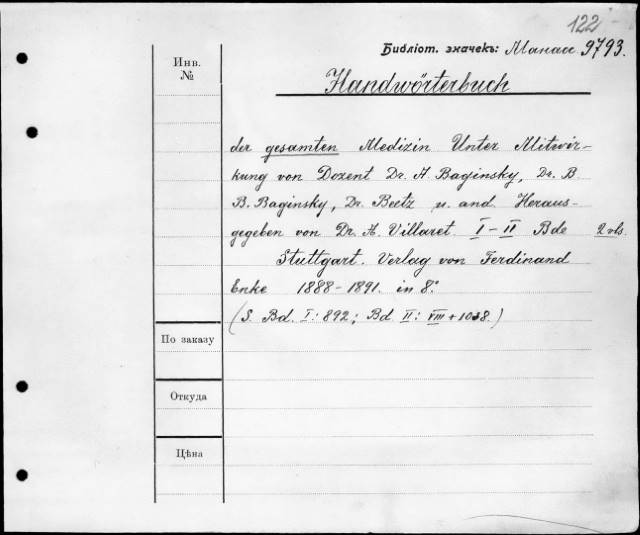 122
Библіот. значекъ: Манас 9793.
Инв.
№
Handwörterbuch
der gesamten Medizin Unter Mitwir-
kung von Dozent Dr. A Baginsky, Dr. B
B. Baginsky, Dr. Beetz u. and Heraus-
gegeben von Dr. A. Villaret. I-II Bde 2 vls.
Stuttgart. Verlag von Ferdinand
Enke 1888-1891. in 8.°
(S. Bd. I: 892; Bd II: VIII + 1038.)
По заказу
Откуда
Цѣна